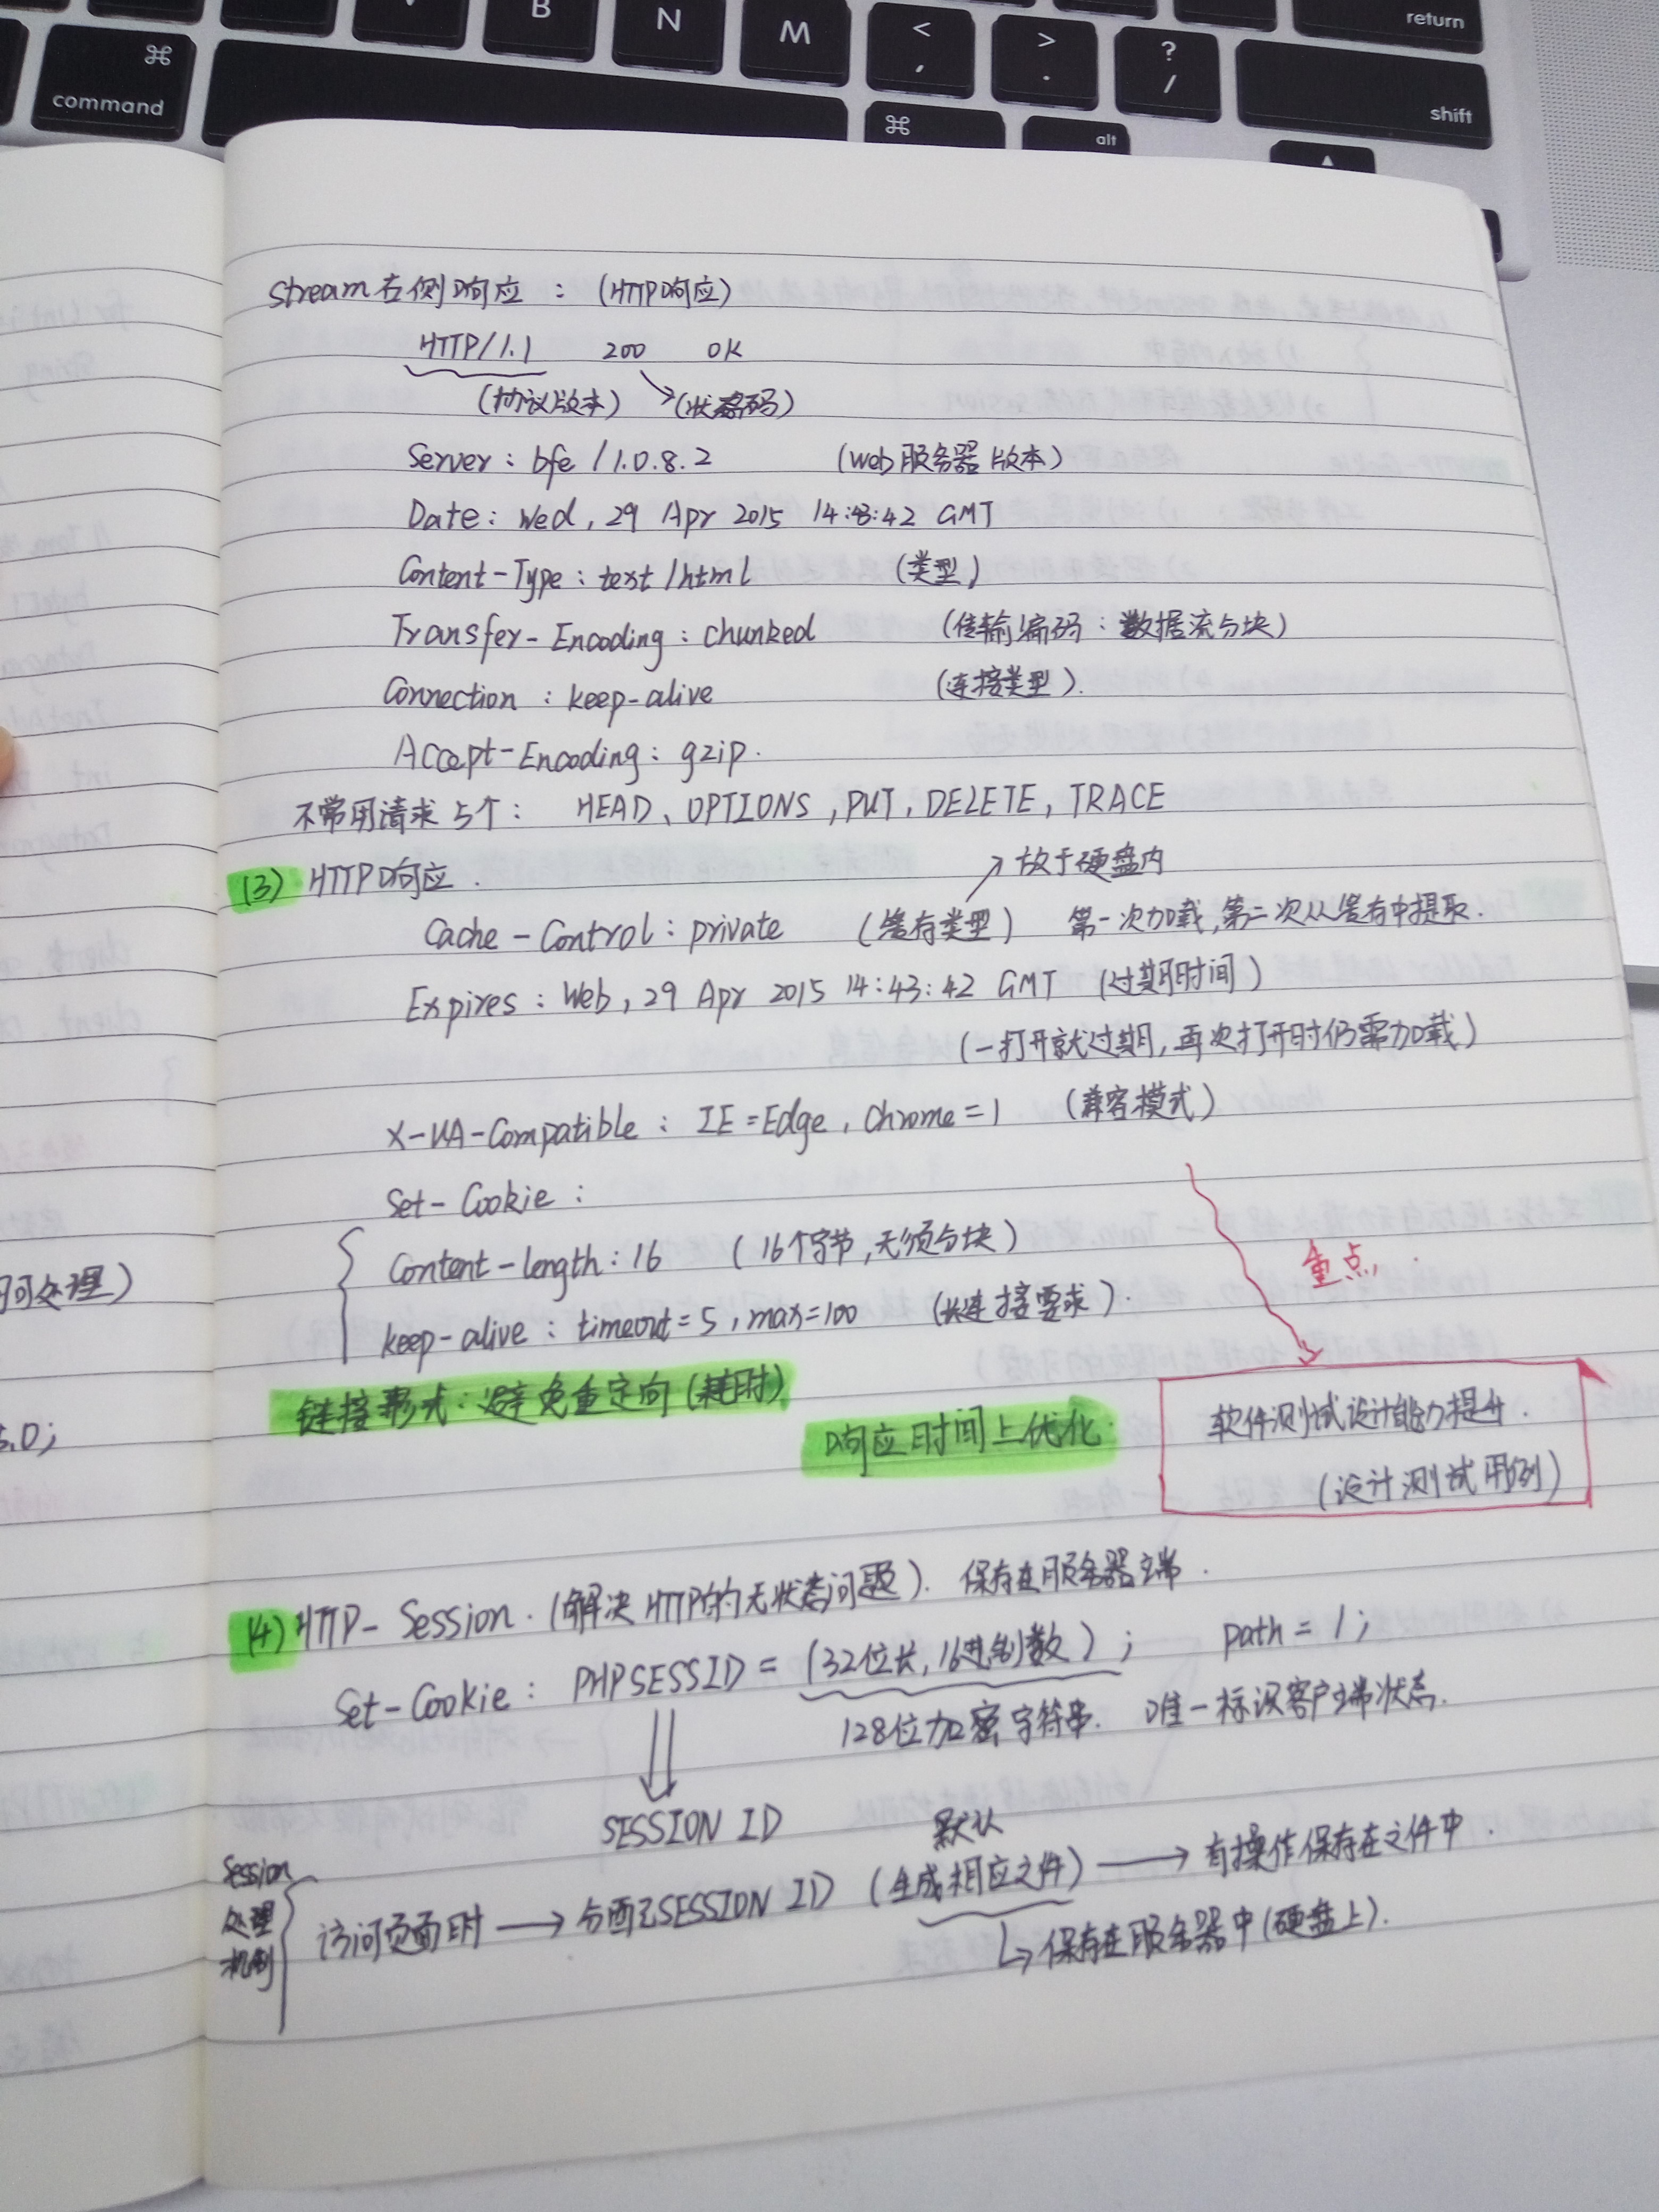 B N M < , > . ? / return
⌘ command ⌘ alt shift
Stream右侧响应：（HTTP响应）
HTTP/1.1 200 OK
（协议版本） （状态码）
Server：bfe/1.0.8.2 （web服务器版本）
Date：Wed, 29 Apr 2015 14:43:42 GMT
Content-Type：text/html （类型）
Transfer-Encoding：chunked （传输编码：数据流分块）
Connection：keep-alive （连接类型）.
Accept-Encoding：gzip.
不常用请求5个： HEAD、OPTIONS, PUT, DELETE, TRACE
(3) HTTP响应. ↗放于硬盘内
Cache-Control：private （缓存类型） 第一次加载,第二次从缓存中提取.
Expires：Web, 29 Apr 2015 14:43:42 GMT （过期时间）
（一打开就过期,再次打开时仍需加载）
X-UA-Compatible：IE=Edge, Chrome=1 （兼容模式）
Set-Cookie：
Content-length：16 （16个字节,无须分块）
重点.
keep-alive：timeout=5, max=100 （长连接要求）.
链接形式：避免重定向（耗时）
响应时间上优化.
软件测试设计能力提升.
（设计测试用例）
(4) HTTP-Session.（解决HTTP的无状态问题）. 保存在服务器端.
Set-Cookie：PHPSESSID=（32位长,16进制数）; path=/;
128位加密字符串. 唯一标识客户端状态.
SESSION ID
默认
Session处理机制 { 访问页面时→分配SESSION ID（生成相应文件）→有操作保存在文件中.
↳保存在服务器中（硬盘上）.
间处理）